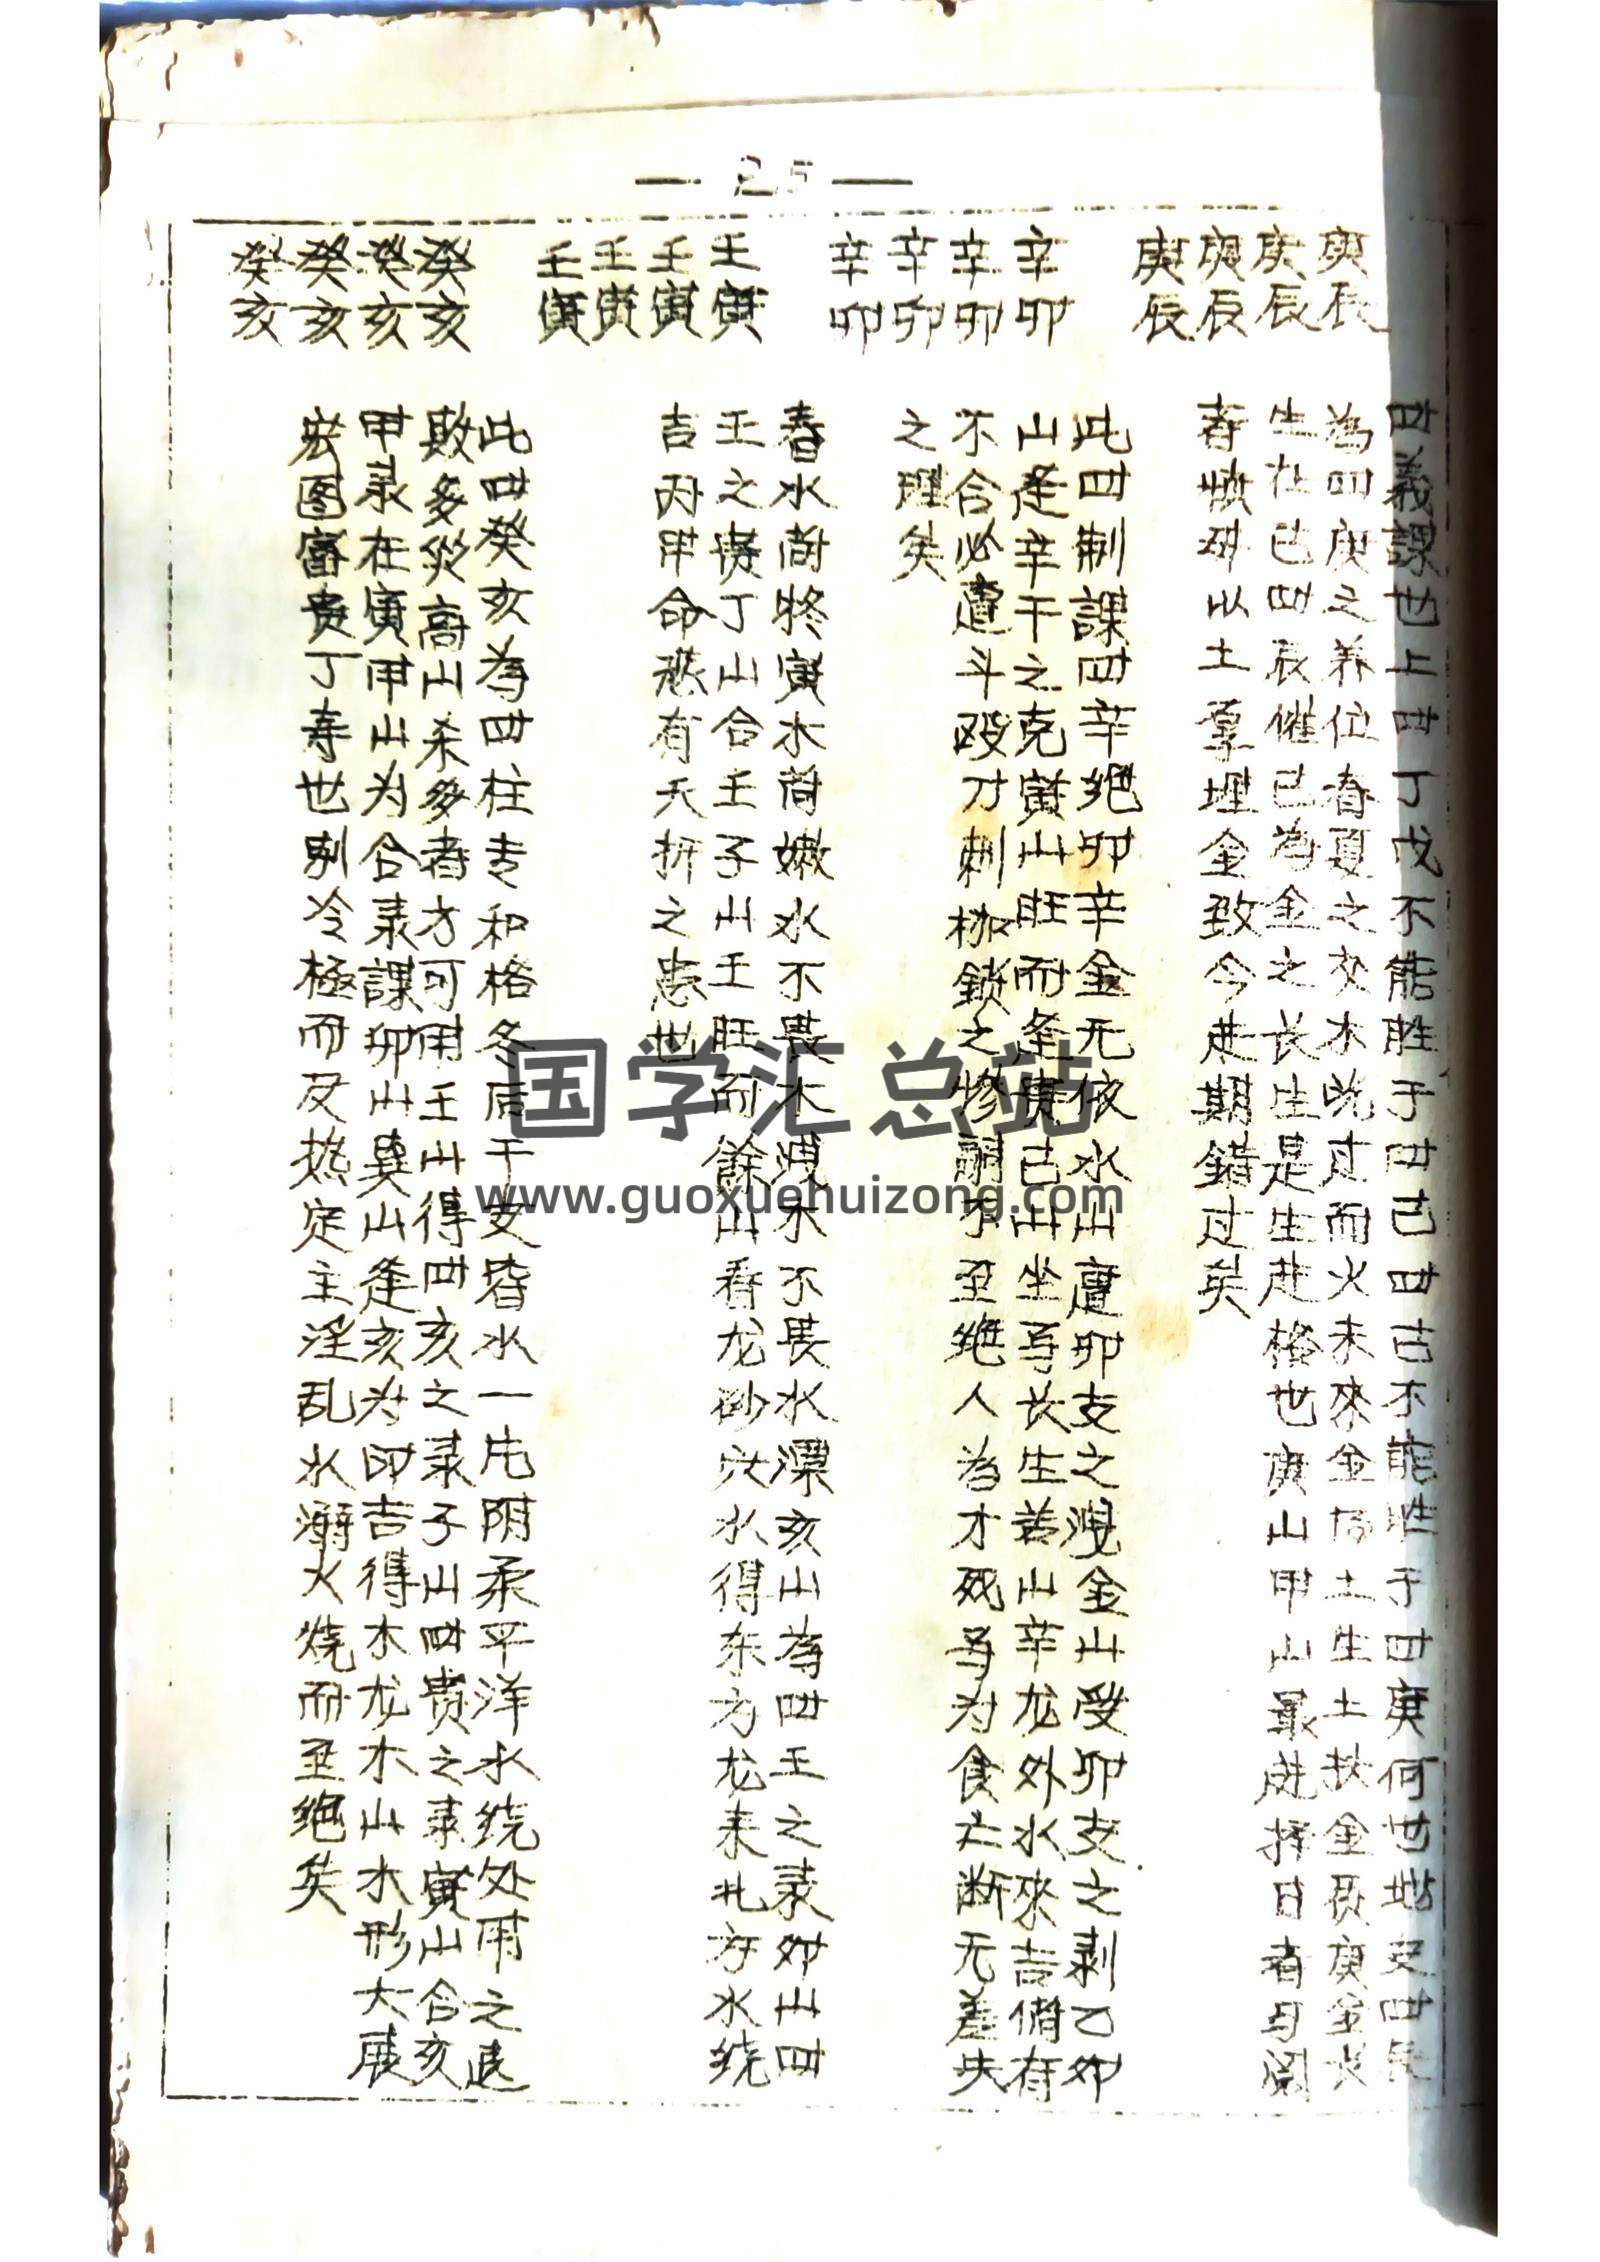 — 25 —
庚辰
庚辰
庚辰
庚辰
四義課也上四丁戊不能胜于四己四己不能胜于四庚何也地支四辰
為四庚之养位春夏之交木既过而火未來金居土生土扶金厚庚金长
生在巳四辰催巳為金之长生是生进格也庚山甲山最进择日者与阅
者慎毋以土重埋金致今进期錯过矣
辛卯
辛卯
辛卯
辛卯
此四制課四辛绝卯辛金无依水山遭卯支之洩金山受卯支之剥乙卯
山逢辛干之克寅山旺而逢貴巳山坐为长生若山辛龙外水來吉偹有
不合必遭斗殴刀刺枷鎖之惨嗣不至绝人為才死為为食亡断无差失
之理矣
壬寅
壬寅
壬寅
壬寅
春水尚终寅木尚嫩水不畏木洩木不畏水漂亥山為四壬之录卯山四
壬之贵丁山合壬子山壬旺而餘山看龙砂穴水得东方龙来北方水绕
吉丙甲命恐有夭折之患也
癸亥
癸亥
癸亥
癸亥
此四癸亥為四柱专和格冬后干支皆水一片阴柔平洋水绕处用之退
敗多災高山杀多者方可用壬山得四亥之录子山四贵之录寅山合亥
甲录在寅甲山为合录課卯山巽山逢亥为印吉得木龙木山木形大展
宏图富贵丁寿也别冷極而反热定主淫乱水溺火烧而至绝矣
国学汇总站
www.guoxuehuizong.com